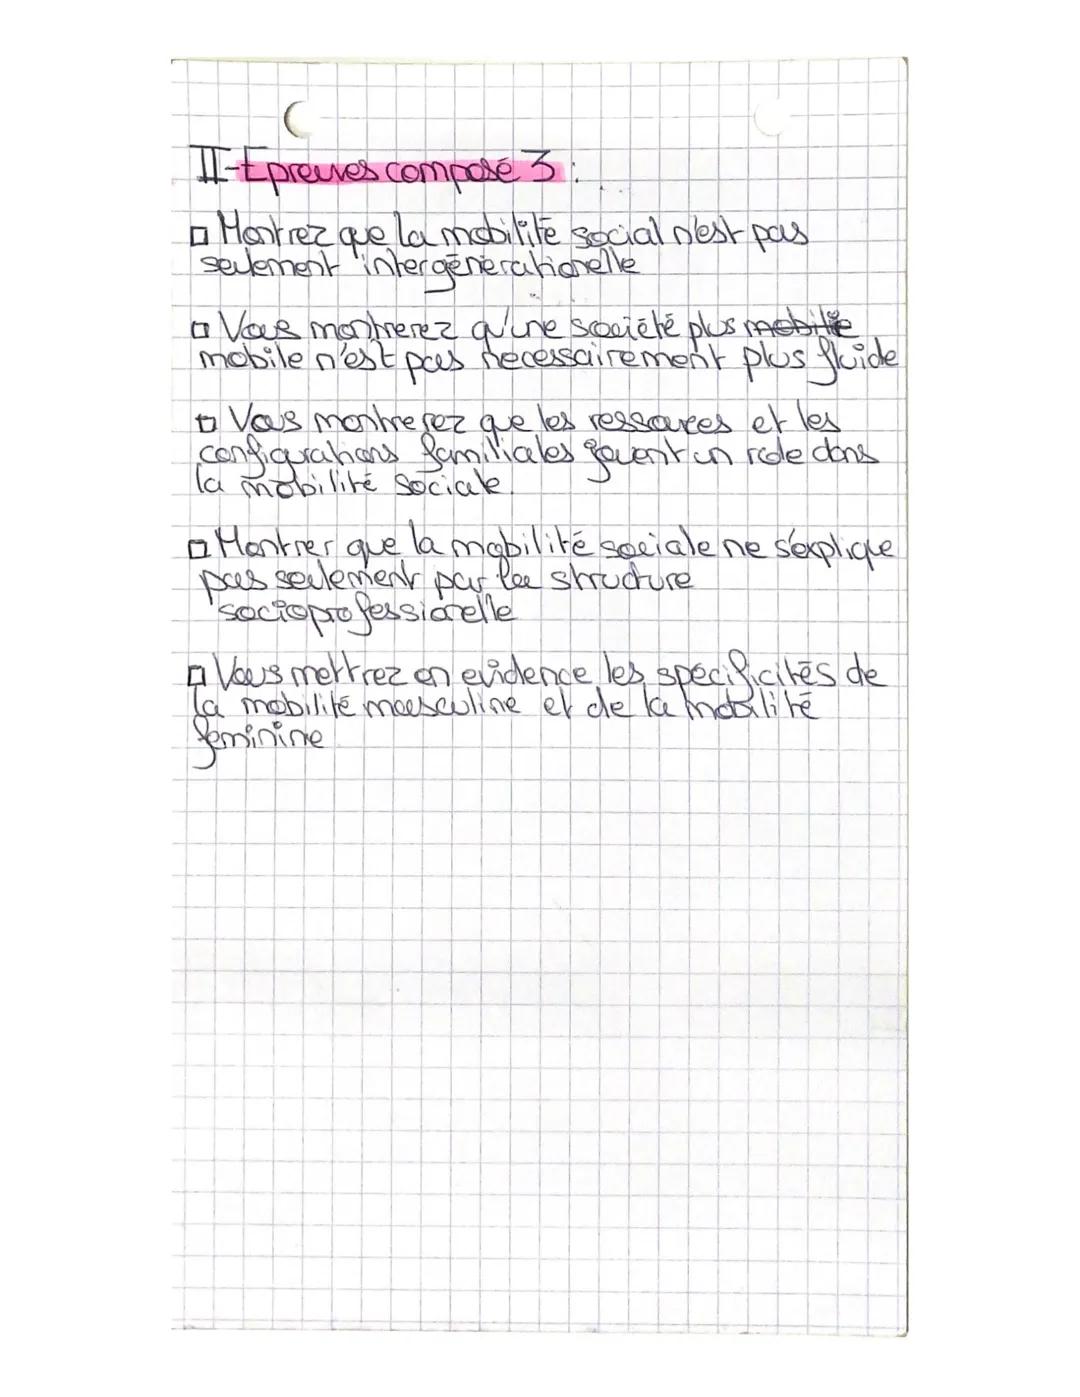 II-Epreuves composé 3 :
□ Montrez que la mobilité social n'est pas
seulement intergénérationelle
□ Vous montrerez qu'une société plus mobilite
mobile n'est pas necessairement plus fluide
□ Vous montrerez que les ressources et les
configurations familiales jouent un role dans
la mobilité sociale.
□ Montrer que la mobilité sociale ne s'explique
pas seulement par la structure
socioprofessionelle
□ Vous mettrez en evidence les spécificités de
la mobilité masculine et de la mobilité
feminine